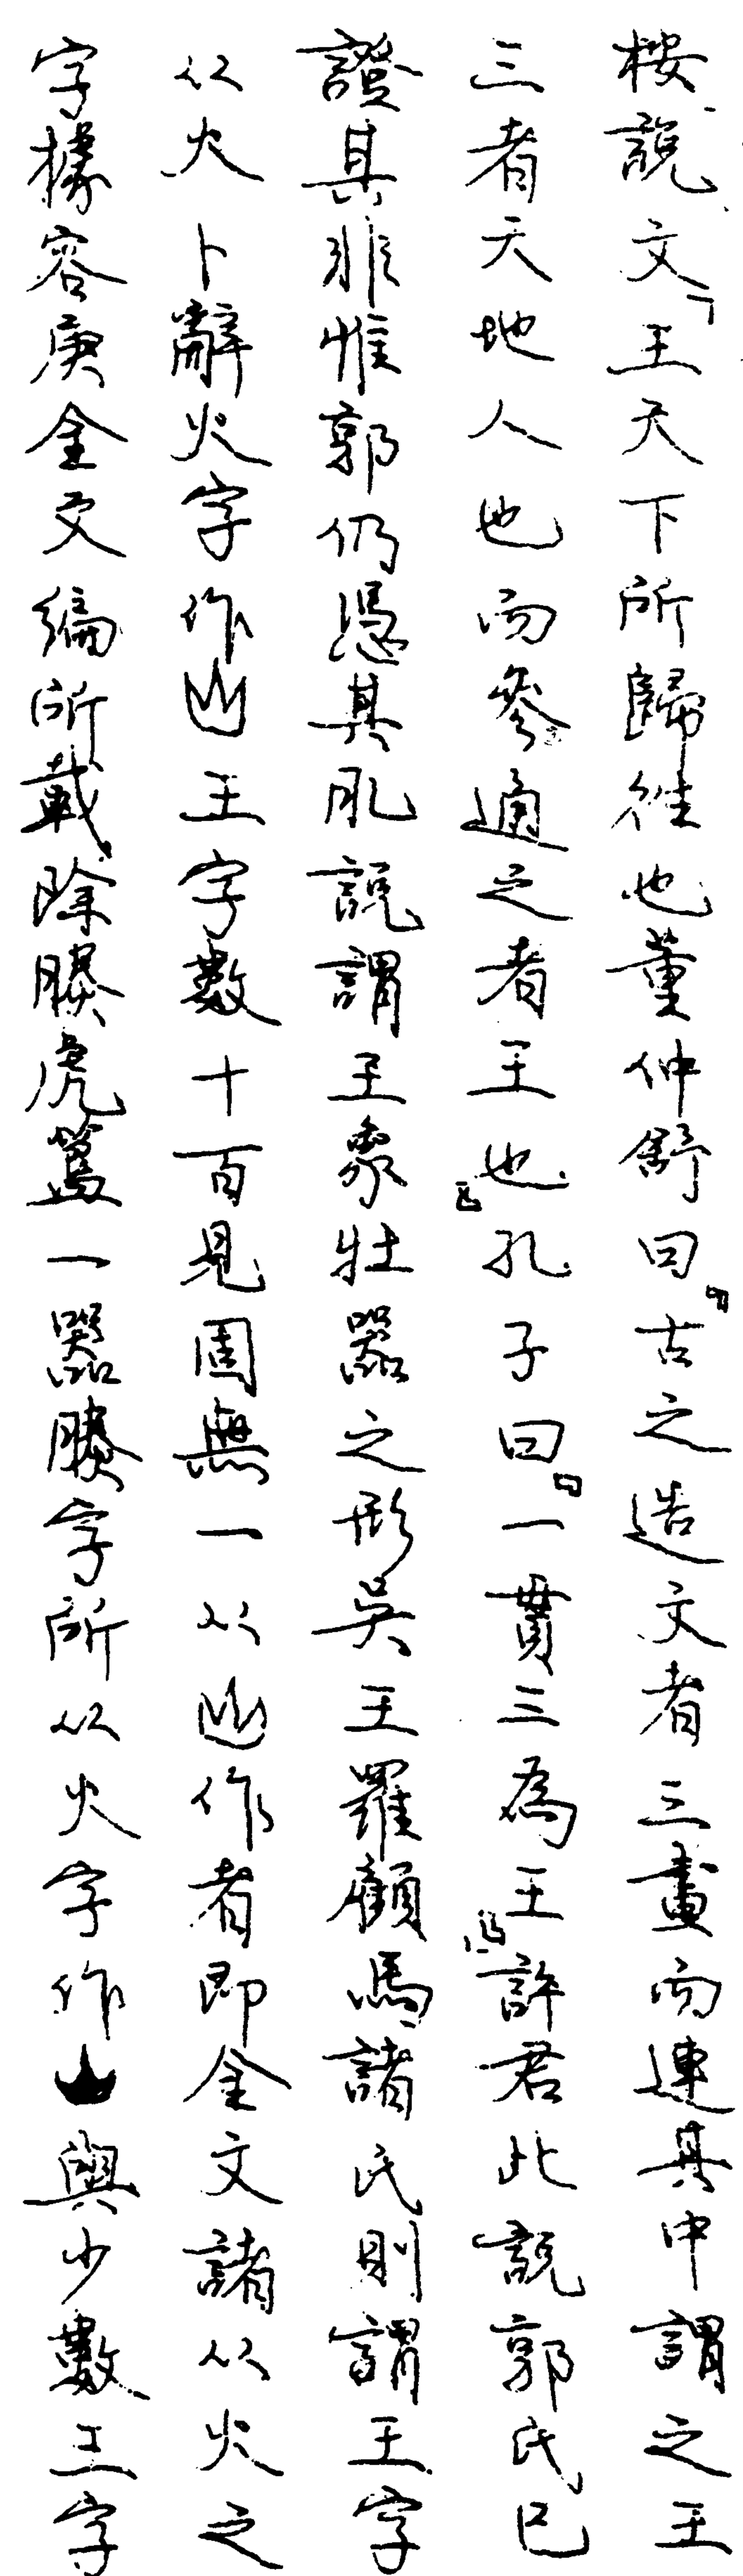 按說文「王天下所歸往也董仲舒曰「古之造文者三畫而連其中謂之王
三者天地人也而參通之者王也」孔子曰「一貫三為王」許君此說郭氏已
證其非惟郭仍憑其肊說謂王象牡器之形吳王羅顧馬諸氏則謂王字
从火卜辭火字作王字數十百見固無一从作者即金文諸从火之
字據容庚金文編所載除滕虎簋一器滕字所从火字作與少數王字